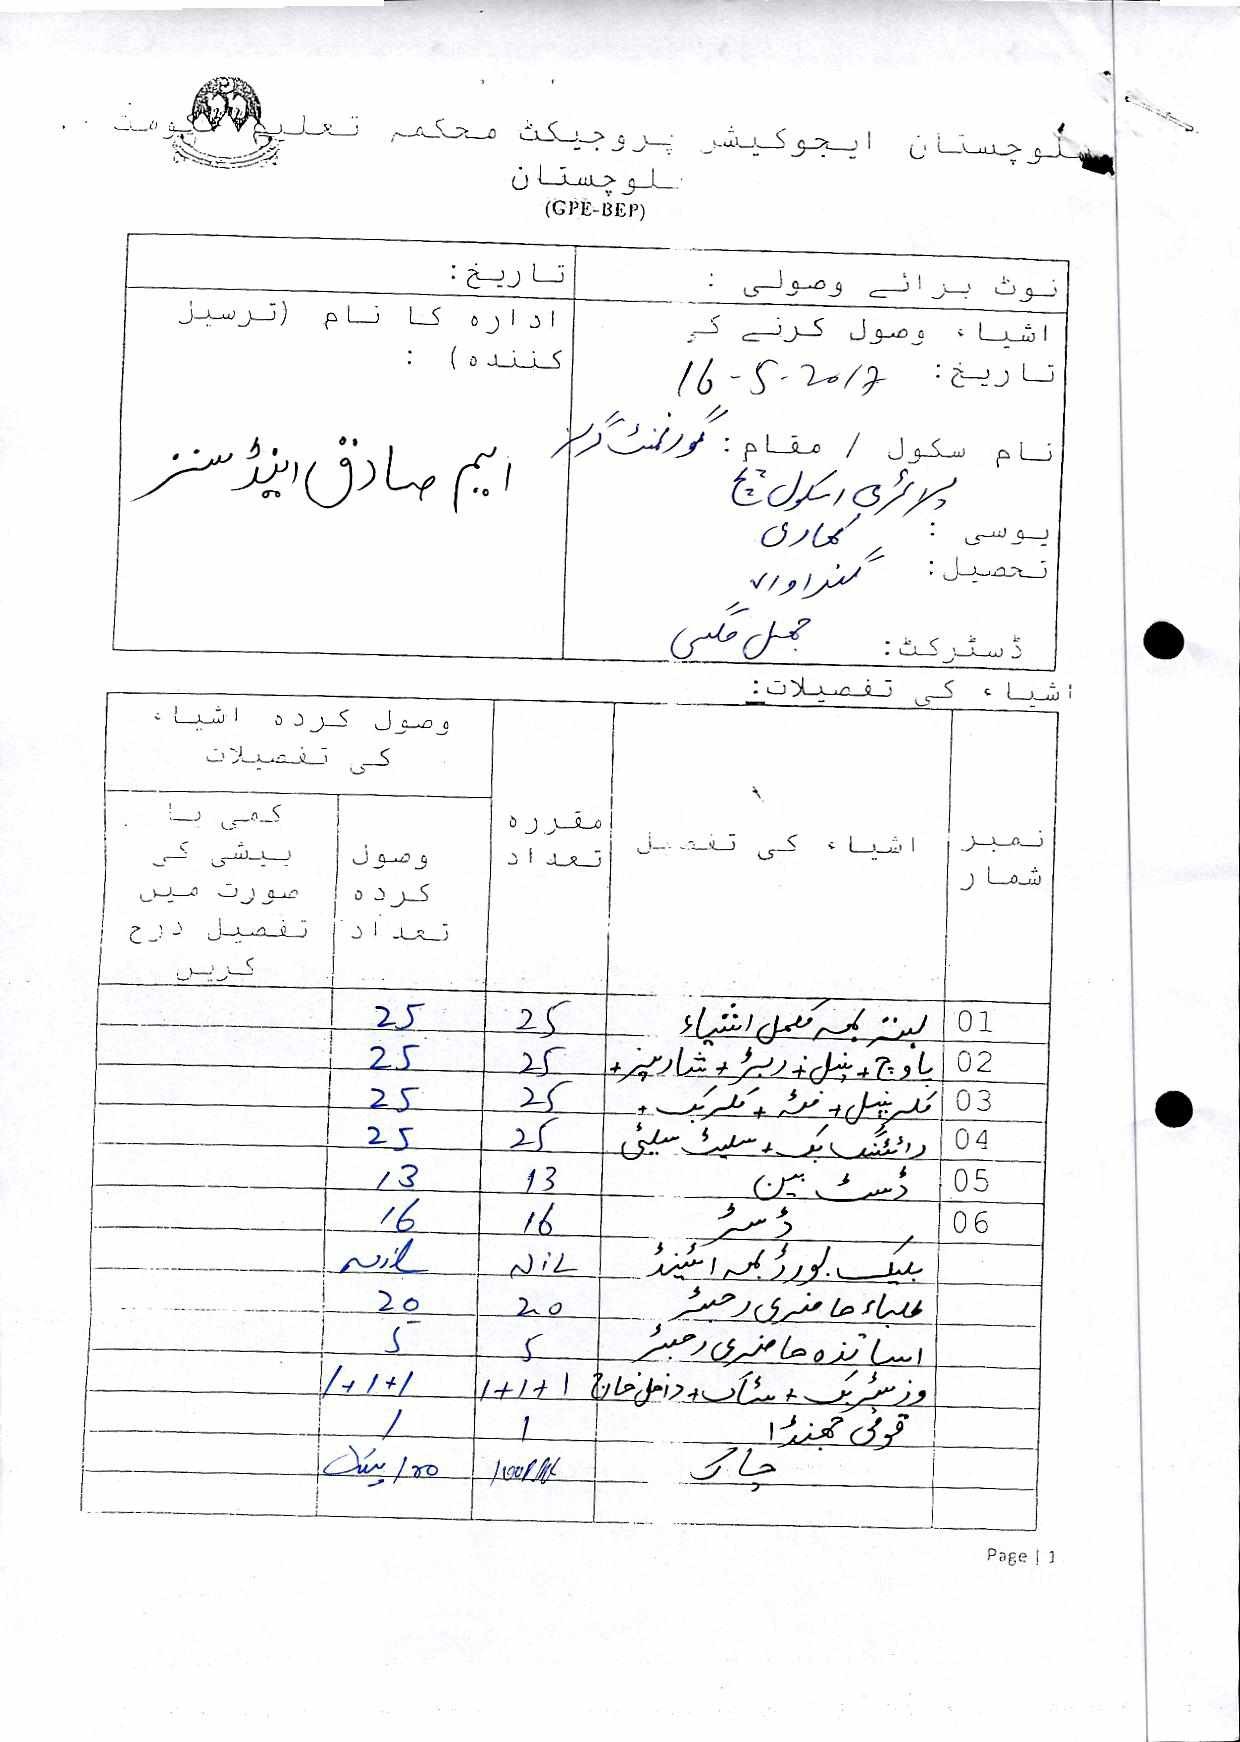 بلوچستان ایجوکیشن پروجیکٹ محکمہ تعلیم حکومت
بلوچستان
(GPE-BEP)
نوٹ برائے وصولی :
تاریخ:
اشیاء وصول کرنے کی
تاریخ: 16-5-2017
نام سکول / مقام: گورنمنٹ گرلز
پرائمری اسکول
یوسی : کھاری
تحصیل: گنداواہ
ڈسٹرکٹ: جھل مگسی
ادارہ کا نام (ترسیل
کنندہ) :
ایم صادق اینڈ سنز
اشیاء کی تفصیلات:
نمبر شمار
اشیاء کی تفصیل
مقررہ تعداد
وصول کردہ اشیاء کی تفصیلات
وصول کردہ تعداد
کمی یا بیشی کی صورت میں تفصیل درج کریں
01 بستہ بمعہ مکمل اشیاء 25 25
02 پاوچ + پنسل + ربڑ + شارپنر + 25 25
03 کلر پنسل + فٹہ + کلر بک + 25 25
04 رائٹنگ بک + سلیٹ سلیٹی 25 25
05 ڈسٹ بین 13 13
06 ڈسٹر 16 16
بلیک بورڈ بمعہ اسٹینڈ NIL
طلباء حاضری رجسٹر 20 20
اساتذہ حاضری رجسٹر 5 5
وزیٹر بک + سٹاک + داخل خارج 1+1+1 1+1+1
قومی جھنڈا 1 1
چاک 100 پیکٹ
Page | 1